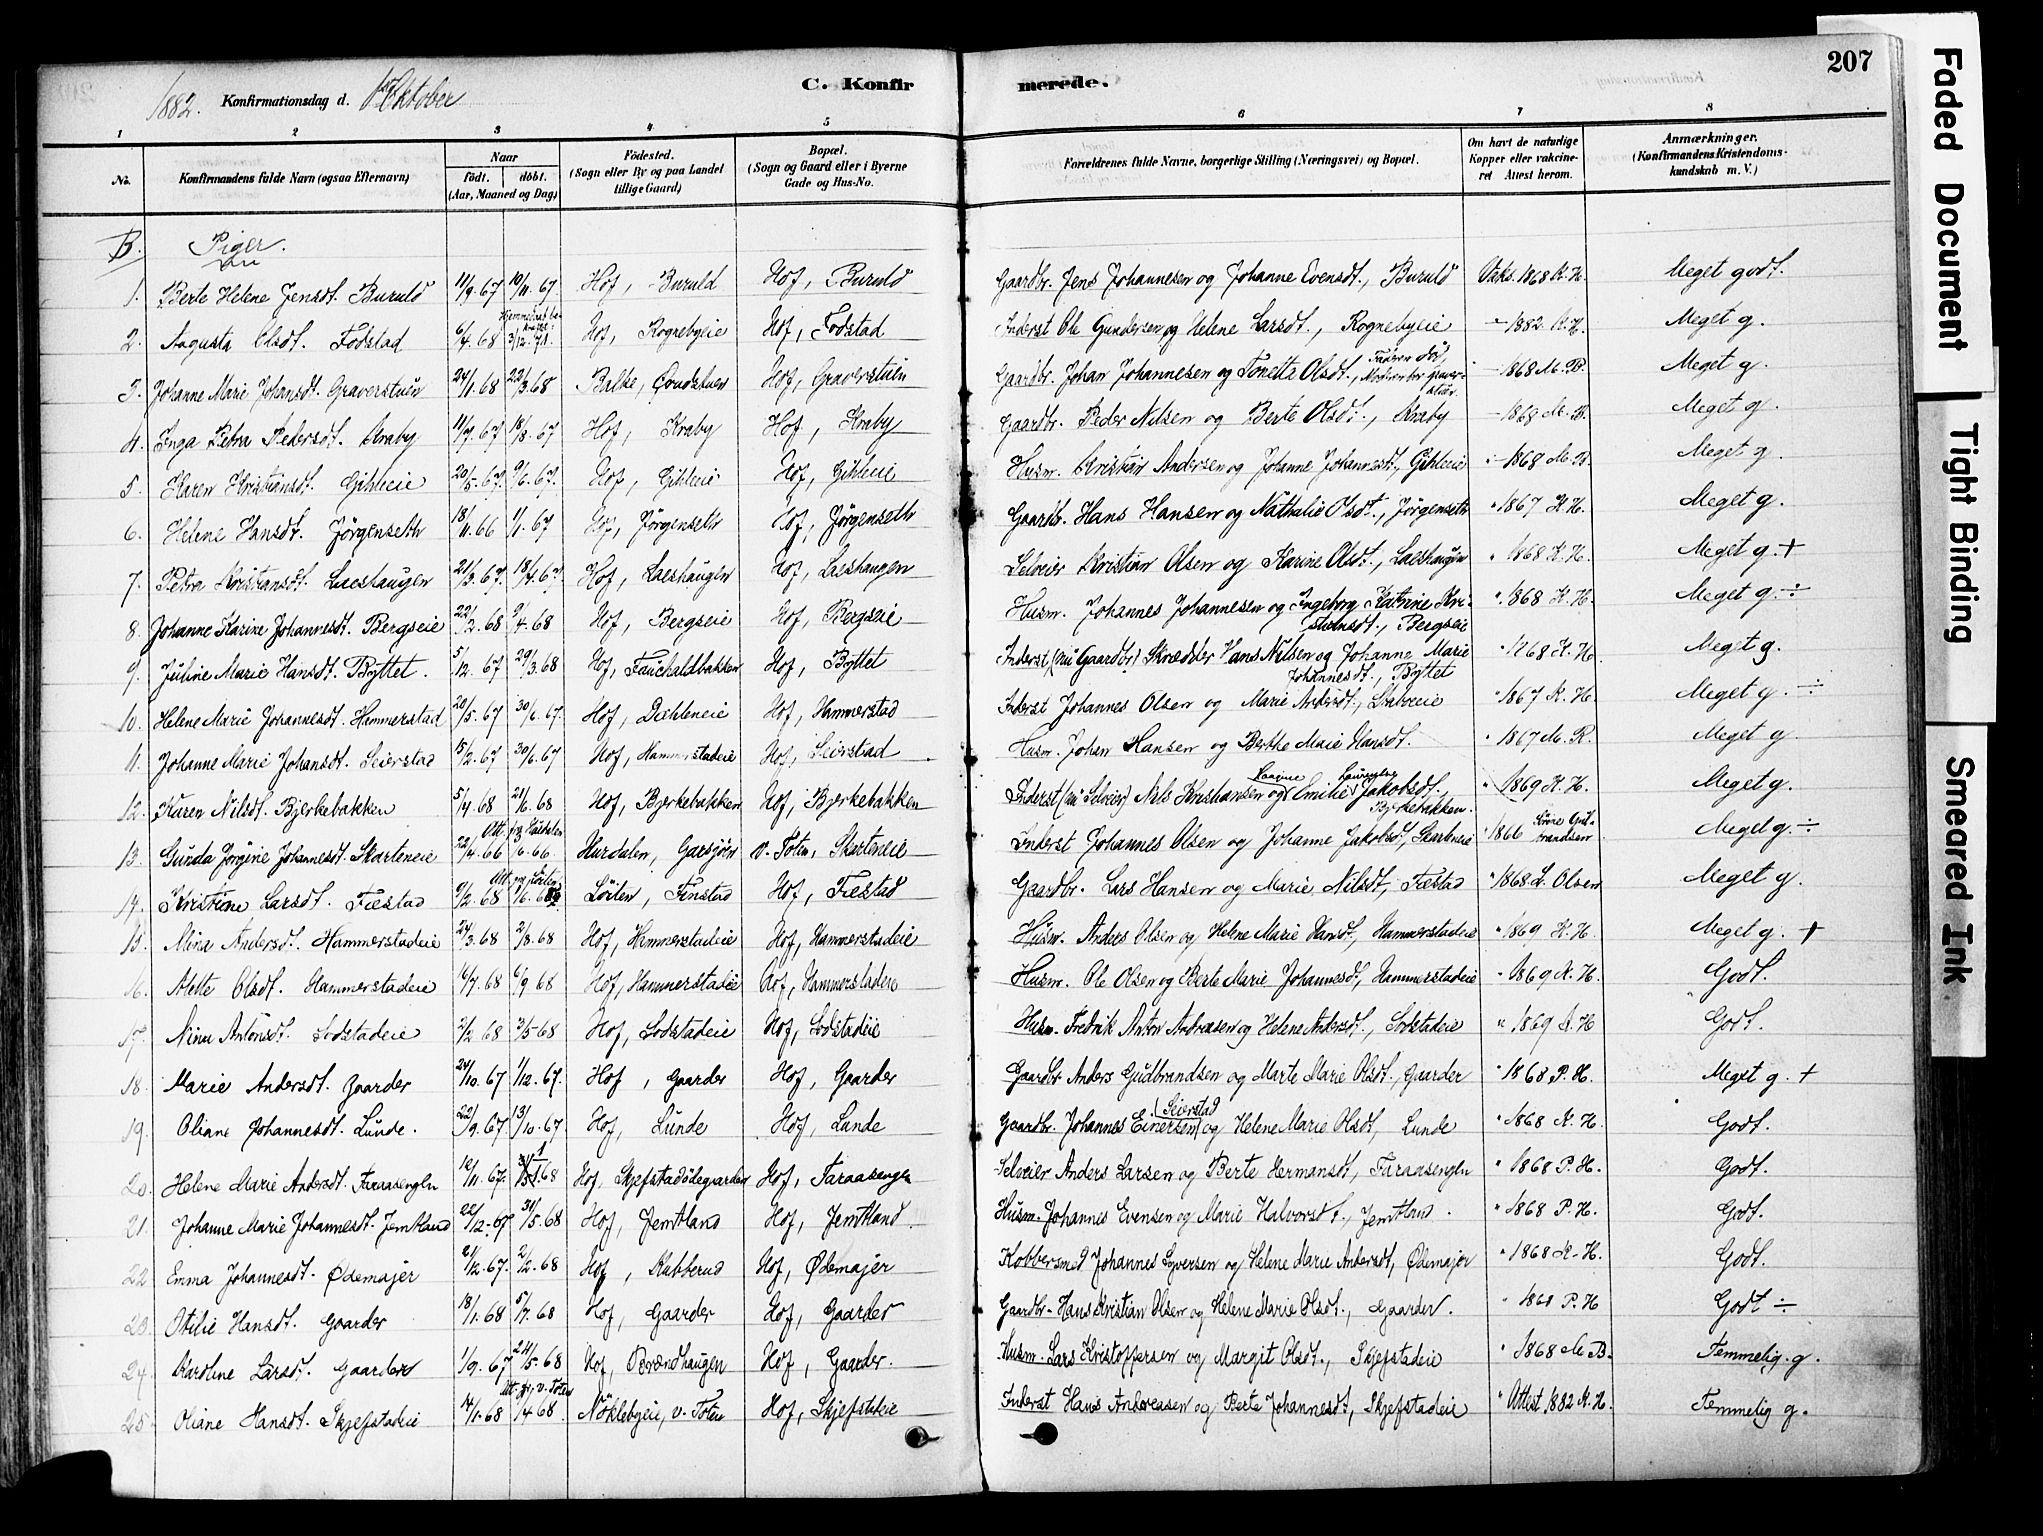 207
1882. Konfirmationsdag d. 1ste Oktober C. Konfirmerede.
1 2 3 4 5 6 7 8
No. Konfirmandens fulde Navn (ogsaa Efternavn) Naar født. døbt. (Aar, Maaned og Dag) Fødested. (Sogn eller By og paa Landet tillige Gaard) Bopæl. (Sogn og Gaard eller i Byerne Gade og Hus-No. Forældrenes fulde Navne, borgerlige Stilling (Næringsvei) og Bopæl. Om havt de naturlige Kopper eller vakcineret Attest herom. Anmærkninger. (Konfirmandens Kristendomskundskab m. V.)
B. Piger.
1. Berte Helene Jensdt. Buruld 11/9 67 10/11 67. Hof, Buruld Hof, Buruld Gaardbr. Jens Johannesen og Johanne Evensdt., Buruld Vakc. 1868 K. H. Meget godt.
2. Augusta Olsdt. Fodstad 6/4 68 3/12 71. Hof, Rognebyeie Hof, Fodstad Inderst Ole Gundersen og Helene Larsdt., Rognebyeie 1882 K. H. Meget g.
3. Johanne Marie Johansdt. Graverstuen 24/1 68 22/3 68 Balke, Hof, Graverstuen Gaardbr. Johan Johannesen og Tonetta Olsdt., Faderen død, 1868 M. B. Meget g.
4. Inga Petra Pedersdt. Kraby 11/7 67 18/8 67 Hof, Kraby Hof, Kraby Gaardbr. Peder Nilsen og Berte Olsdt., Kraby 1869 M. B. Meget g.
5. Karen Kristiansdt. Gihleie 20/5 67. 9/6 67. Hof, Gihleie Hof, Gihleie Husm. Kristian Andersen og Johanne Johannesdt., Gihleie 1868 M. B. Meget g.
6. Helene Hansdt. Jørgenseth 18/11 66 1/1 67 Hof, Jørgenseth Hof, Jørgenseth Gaardbr. Hans Hansen og Nathalie Olsdt., Jørgenseth " 1867 K. H. Meget g.
7. Petra Kristiansdt. Laeshaugen 21/3 67. 18/4 67 Hof, Laeshaugen Hof, Laeshaugen Selveier Kristian Olsen og Karine Olsdt., Laeshaugen " 1868 K. H. Meget g. +
8. Johanne Karine Johannesdt. Bergseie 22/2 68 9/4 68 Hof, Bergseie Hof, Bergseie Husm. Johannes Johannesen og Ingeborg Katrine Kristiansdt., Bergseie " 1868 K. H. Meget g. ÷
9. Juline Marie Hansdt. Byttet. 5/12 67 29/3 68 Hof, Fauchaldbakken Hof, Byttet Inderst (nu Gaardbr) Skrædder Hans Nilsen og Johanne Marie Johannesdt., Byttet " 1868 K. H. Meget g.
10. Helene Marie Johannesdt. Hammerstad 20/5 67 30/6 67. Hof, Dihleneie Hof, Hammerstad Inderst Johannes Olsen og Marie Andersdt., " 1867 K. H. Meget g. ÷
11. Johanne Marie Johansdt. Seierstad 15/2 67 30/6 67 Hof, Hammerstadeie Hof, Seierstad Husm. Johan Hansen og Berthe Marie Hansdt. " 1867 M. R. Meget g.
12. Karen Nilsdt. Bjerkebakken 5/4 68 21/6 68 Hof, Bjerkebakken Hof, Bjerkebakken Inderst (nu Selveier) Nils Kristiansen og Emilie Jakobsdt., Bjerkebakken. " 1869 K. H. Meget g.
13. Gunda Jørgine Johannesdt. Skarteneie 22/4 66 Att. fra Hurdalen 3/6 66 Hurdalen, Garsjøen v. Toten, Skarteneie Inderst Johannes Olsen og Johanne Jakobsdt., Skarteneie " 1866 Gulbrandsen Meget g. ÷
14. Kristine Larsdt. Fæstad 9/2 68 Løiten, Finstad Hof, Fæstad Gaardbr. Lars Hansen og Marie Nilsdt., Fæstad " 1868 L. Olsen Meget g.
15. Mina Andersdt. Hammerstadeie 24/3 68 2/8 68 Hof, Hammerstadeie Hof, Hammerstadeie Husm. Anders Olsen og Helene Marie Hansdt., Hammerstadeie " 1869 K. H. Meget g. +
16. Alette Olsdt. Hammerstadeie 16/7 68 6/9 68 Hof, Hammerstadeie Hof, Hammerstadeie Husm. Ole Olsen og Berte Marie Johannesdt., Hammerstadeie " 1869 K. H. Godt.
17. Nina Antonsdt. Sodstadeie 2/2 68 3/5 68 Hof, Sodstadeie Hof, Sodstadeie Husm. Fredrik Anton Andreasen og Helene Andersdt., Sodstadeie " 1869 K. H Godt.
18. Marie Andersdt. Gaarder 24/10 67 1/12 67. Hof, Gaarder Hof, Gaarder Gaardbr Anders Gudbrandsen og Marte Marie Olsdt., Gaarder " 1868 P. H. Meget g. +
19. Oliane Johannesdt. Lunde. 22/9 67 13/10 67 Hof, Lunde Hof, Lunde Gaardbr. Johannes Einersen (Seierstad) og Helene Marie Olsdt, Lunde " 1868 K. H. Godt.
20. Helene Marie Andersdt. Faraasengen 12/11 67. 68 Hof, Skjefstadødegaarden Hof, Faraasengen Selveier Anders Larsen og Berte Hermansdt, Faraasengen " 1868 P. H. Godt.
21. Johanne Marie Johannesdt. Jemtland 22/12 67 31/5 68 Hof, Jemtland Hof, Jemtland. Husm. Johannes Evensen og Marie Halvorsdt., Jemtland. " 1868 P. H. Godt.
22 Emma Johannesdt. Ødemajer 2/12 67. 2/2 68 Hof, Kubberud Hof, Ødemajer Kobbersmed Johannes Syversen og Helene Marie Andersdt, Ødemajer " 1868 K. H. Godt.
23. Otilie Hansdt. Gaarder 18/1 68 5/7 68 Hof, Gaarder Hof, Gaarder Gaardbr. Hans Kristian Olsen og Helene Marie Olsdt., Gaarder. " 1868 P. H Godt ÷
24. Karoline Larsdt. Gaarder 1/9 67 24/5 68 Hof, Brændhaugen Hof, Gaarder. Husm. Lars Kristoffersen og Margit Olsdt., Skjefstadeie " 1868 M. B. Temmelig g.
25. Oliane Hansdt. Skjefstadeie 14/1 68 Att. fr. v. Toten /4 68 Nøklebyeie, v. Toten Hof, Skjefstadeie Inderst Hans Andreasen og Berte Johannesdt, Skjefstadeie " Attest 1882 K. H. Temmelig g.
Faded Document
Tight Binding
Smeared Ink